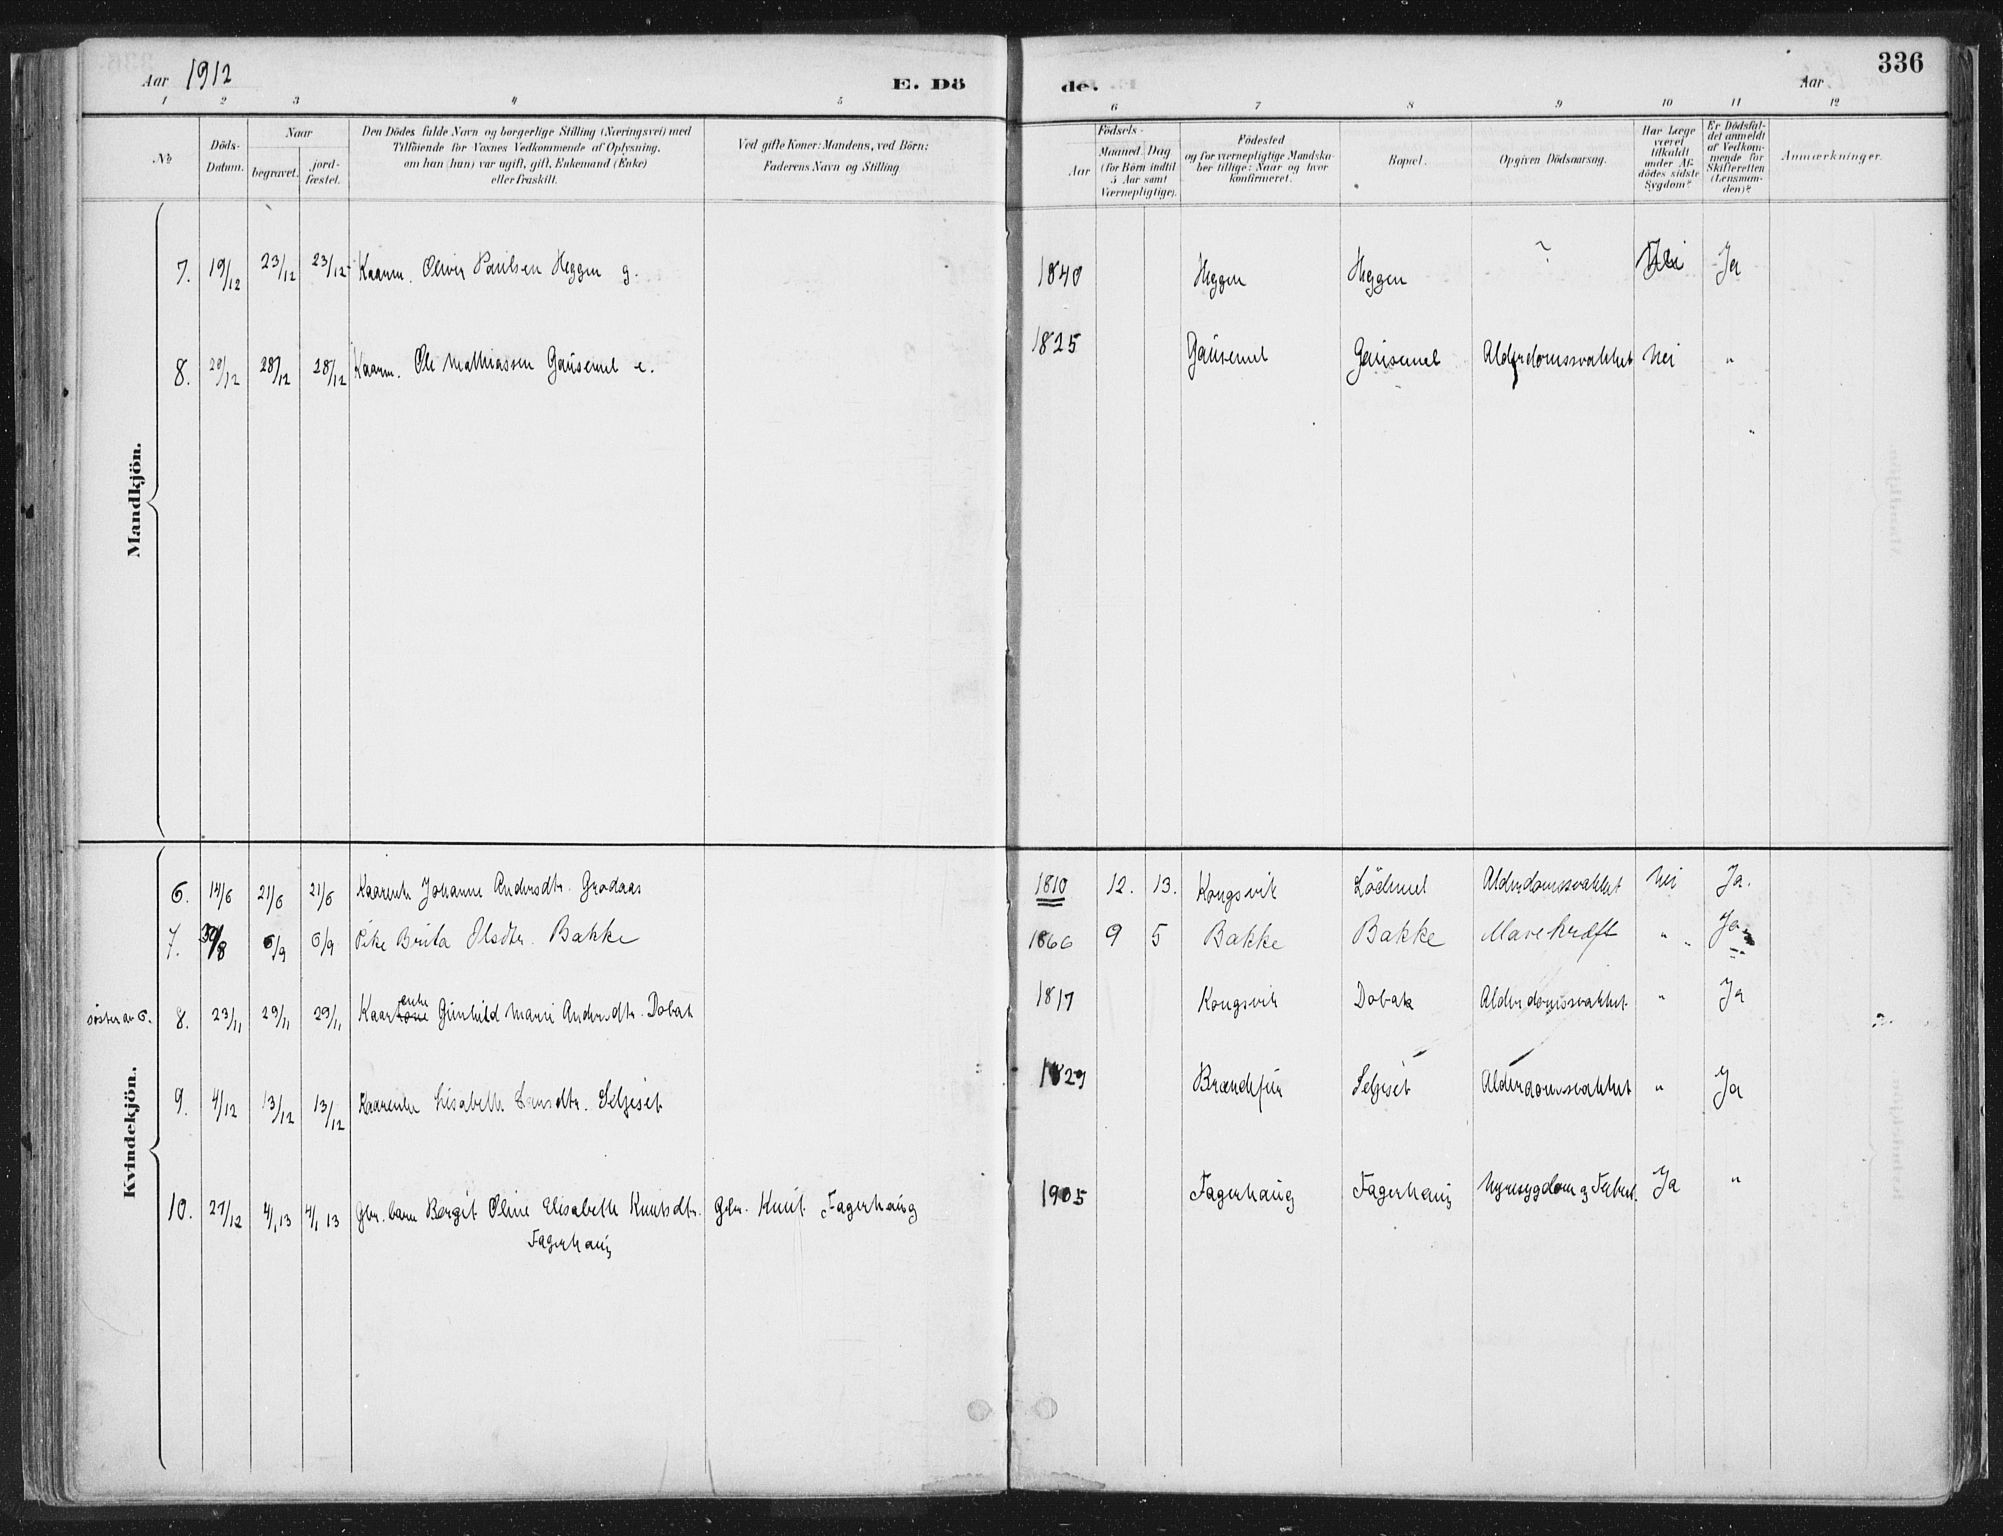 Aar 1912 E. Dö de. Aar 336
1 2 3 4 5 6 7 8 9 10 11 12
№
Döds-
Datum.
Naar
begravet.
jord-
fæstet.
Den Dödes fulde Navn og borgerlige Stilling (Næringsvei) med
Tilföiende for Voxnes Vedkommende af Oplysning,
om han (hun) var ugift, gift, Enkemand (Enke)
eller fraskilt.
Ved gifte Koner: Mandens, ved Börn:
Faderens Navn og Stilling
Födsels-
Aar
Maaned. Dag
(for Børn indtil
5 Aar samt
Værnepligtige).
Födested
og for værnepligtige Mandska-
ber tillige: Naar og hvor
konfirmeret.
Bopæl.
Opgiven Dödsaarsag.
Har Læge
været
tilkaldt
under Af-
dödes sidste
Sygdom?
Er Dödsfal-
det anmeldt
af Vedkom-
mende for
Skifteretten
(Lensman-
den)?
Anmærkninger.
Mandkjön.
7. 19/12 23/12 23/12 Kaarm. Oliver Paulsen Heggen g. 1840 Heggen Heggen ? Nei Ja
8. 28/12 28/12 Kaarm. Ole Mathiassen Gausemel e. 1825 Gausemel Gausemel Alderdomssvakhet Nei "
Kvindekjön.
6. 14/6 21/6 21/6 Kaarenke Johanne Andersdtr. Grodaas 1810 12. 13. Kongsvik Lödemel Alderdomssvakhet Nei Ja.
7. 30/8 6/9 6/9 Pike Brita Olsdtr. Bakke 1866 9 5 Bakke Bakke Mavekræft " Ja
søster av 6. 8. 23/11 29/11 29/11 Kaarenke Gunhild Marie Andersdtr. Dobak 1817 Kongsvik Dobak Alderdomssvakhet " Ja
9. 4/12 13/12 13/12 Kaarenke Elisabeth Larsdtr. Seljeset 1829 Brandsfur Seljeset Alderdomssvakhet " Ja
10. 27/12 4/1 13 4/1 13 Gbr. barn Bergit Oline Elisabeth Knutsdtr. Gbr. Knut Fagerhaug 1905 Fagerhaug Fagerhaug Nyresygdom og Ja "
Fagerhaug